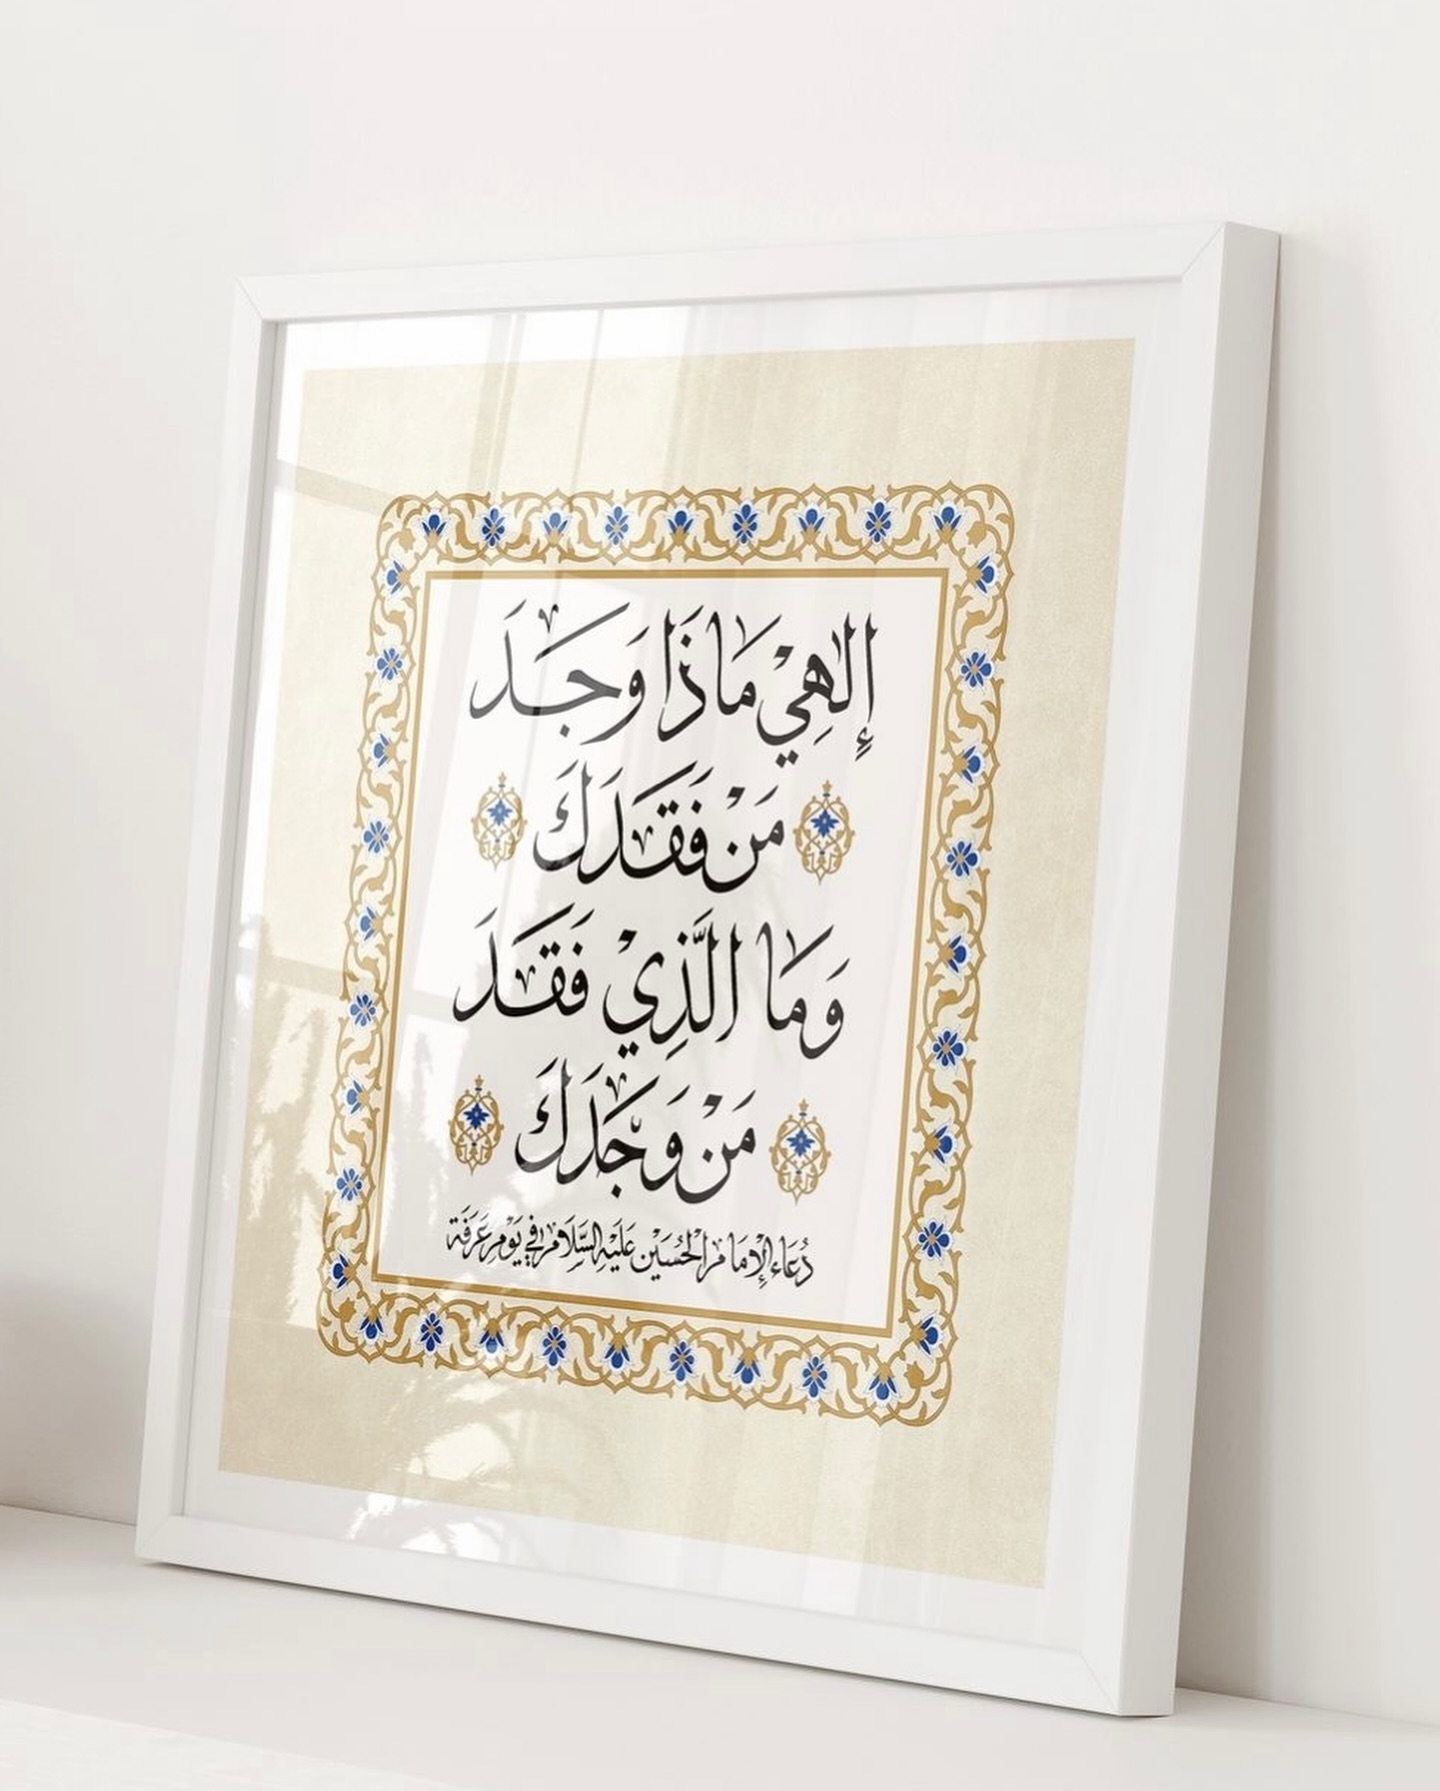 إِلٰهِيْ مَاذَا وَجَدَ
مَنْ فَقَدَكَ
وَمَا الَّذِيْ فَقَدَ
مَنْ وَجَدَكَ
دُعَاء الْإِمَام الْحُسَيْن عَلَيْهِ السَّلَام فِي يَوْم عَرَفَة